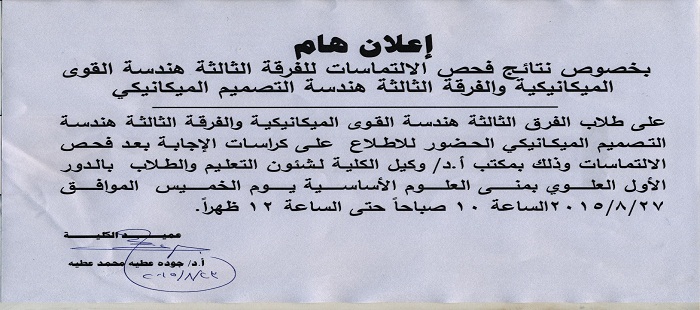 إعلان هام
بخصوص نتائج فحص الالتماسات للفرقة الثالثة هندسة القوى
الميكانيكية والفرقة الثالثة هندسة التصميم الميكانيكي
على طلاب الفرق الثالثة هندسة القوى الميكانيكية والفرقة الثالثة هندسة
التصميم الميكانيكي الحضور للاطلاع على كراسات الإجابة بعد فحص
الالتماسات وذلك بمكتب أ.د/ وكيل الكلية لشئون التعليم والطلاب بالدور
الأول العلوي بمنى العلوم الأساسية يوم الخميس الموافق
٢٠١٥/٨/٢٧الساعة ١٠ صباحاً حتى الساعة ١٢ ظهراً.
عميد الكلية
أ.د/ جوده عطيه محمد عطيه
٢٠١٥/٨/٢٣